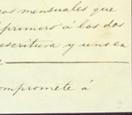 os mensuales que
primero á los dos
escritura y uno en
compromete á